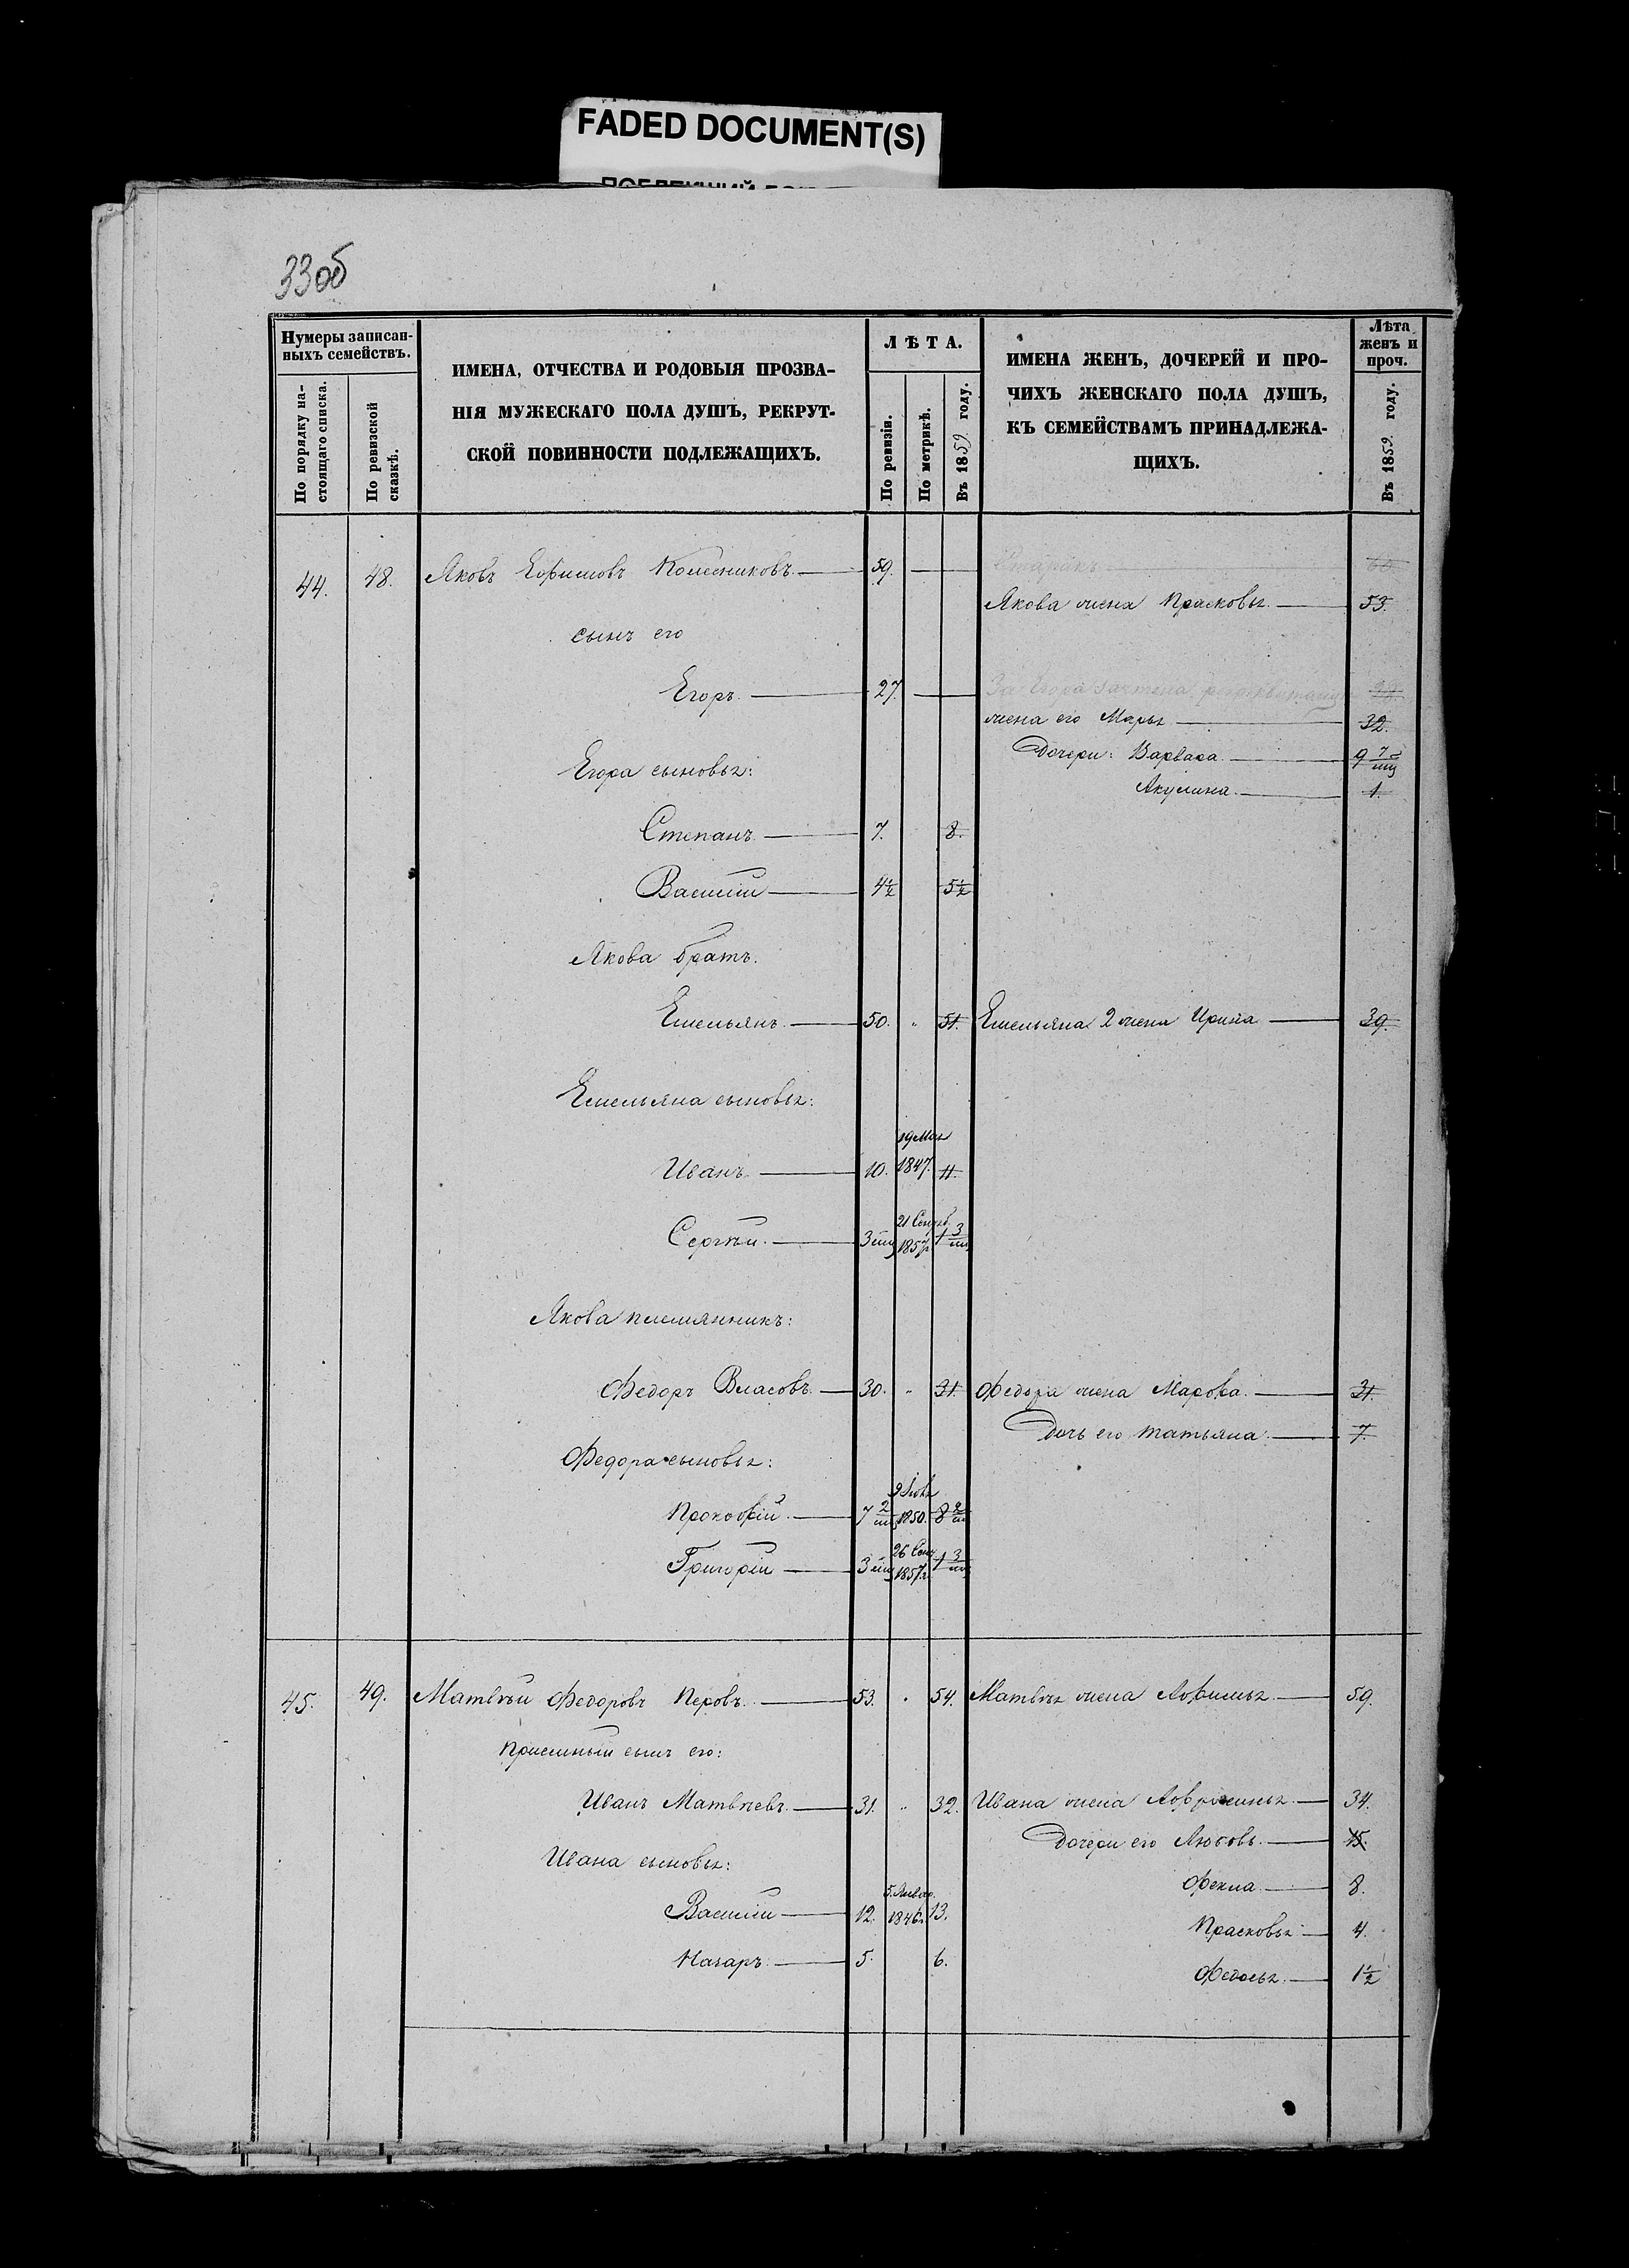 FADED DOCUMENT(S)
33об
Нумеры записан-
ныхъ семействъ.
По порядку на-
стоящаго списка.
По ревизской
сказкѣ.
ИМЕНА, ОТЧЕСТВА И РОДОВЫЯ ПРОЗВА-
НІЯ МУЖЕСКАГО ПОЛА ДУШЪ, РЕКРУТ-
СКОЙ ПОВИННОСТИ ПОДЛЕЖАЩИХЪ.
ЛѢТА.
По ревизіи.
По метрикѣ.
Въ 1859 году.
ИМЕНА ЖЕНЪ, ДОЧЕРЕЙ И ПРО-
ЧИХЪ ЖЕНСКАГО ПОЛА ДУШЪ,
КЪ СЕМЕЙСТВАМЪ ПРИНАДЛЕЖА-
ЩИХЪ.
Лѣта
женъ и
проч.
Въ 1859 году.
44. 48. Яковъ Ефимовъ Колесниковъ 59. 60
Якова жена Прасковья 53.
сынъ его
Егоръ 27. За Егора зачтена
жена его Марья 32.
Дочери: Варвара 9 7/мц
Егора сыновья:
Акулина 1.
Степанъ 7. 8.
Василий 4½ 5½
Якова братъ.
Емельянъ 50. 51. Емельяна 2 жена Ирина 39.
Емельяна сыновья:
19 Мая
Иванъ 10. 1847. 11.
21 Сентяб
Сергѣй 3 мц 1857г. 1 3/мц
Якова племянникъ:
Федоръ Власовъ 30. 31. Федора жена Марфа 31.
Дочь его Татьяна 7.
Федора сыновья:
Прокофій 7 2/мц 1850. 8 2/мц
26 Сен
Григорій 3 мц 1857г. 1 3/мц
45. 49. Матвѣй Федоровъ Перовъ 53. 54. Матвѣя жена Афимья 59.
Приемный сынъ его:
Иванъ Матвѣевъ 31. 32. Ивана жена Афросинья 34.
Дочери его Любовь 15.
Ивана сыновья:
Фекла 8.
5 Январ.
Василий 12. 1846г. 13.
Прасковья 4.
Назаръ 5. 6.
Федосья 1½